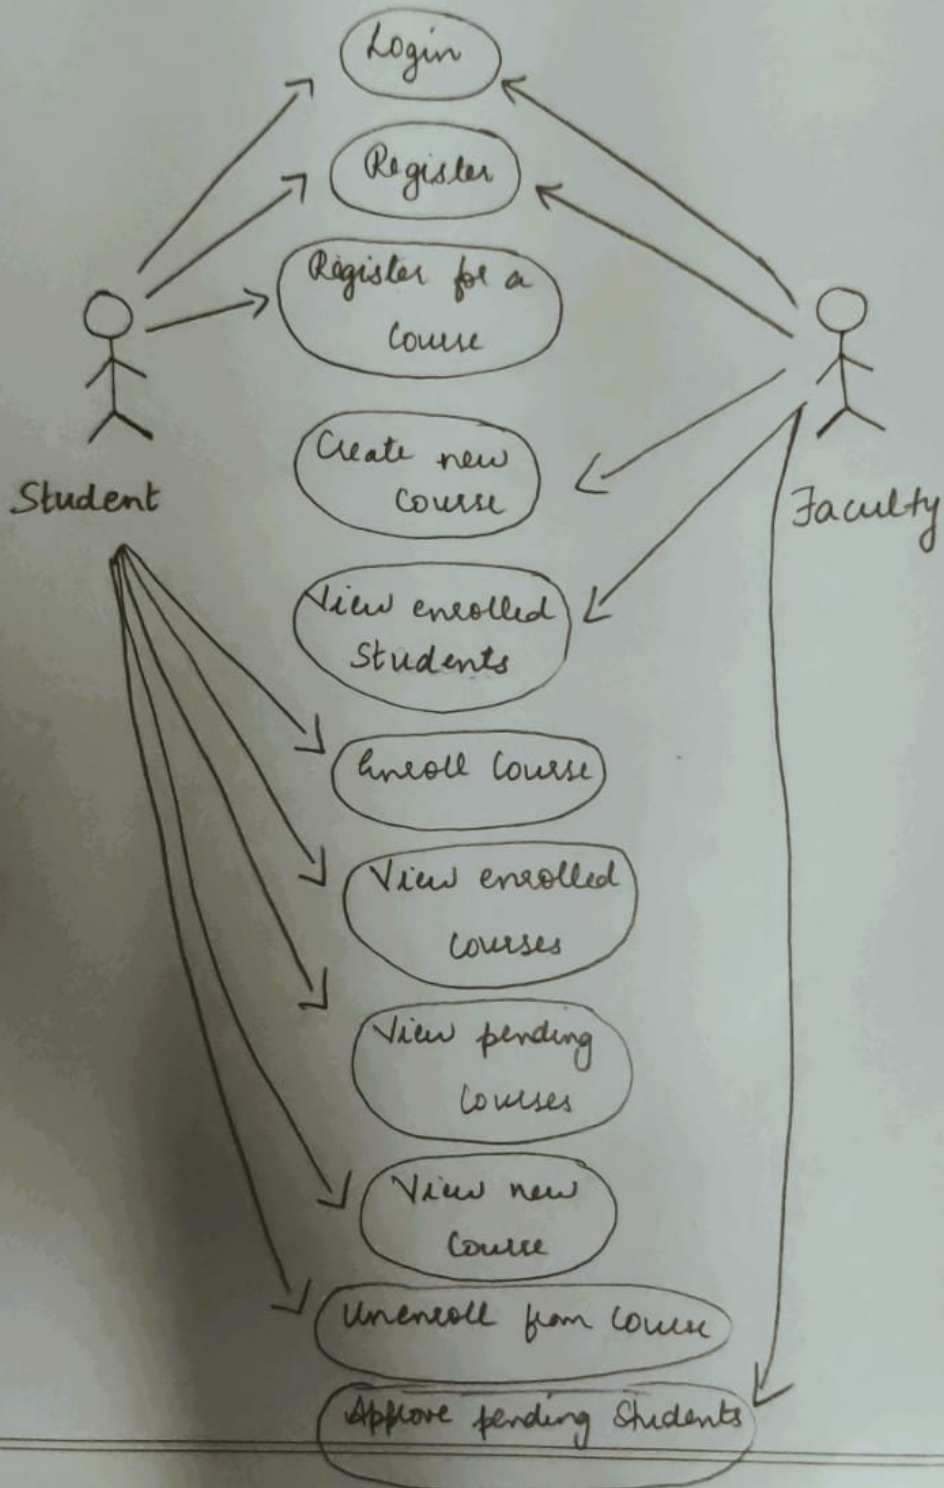 Login
Register
Register for a
Course
Create new
Course
Student
Faculty
View enrolled
Students
Enroll Course
View enrolled
Courses
View pending
Courses
View new
Course
Unenroll from Course
Approve pending Students